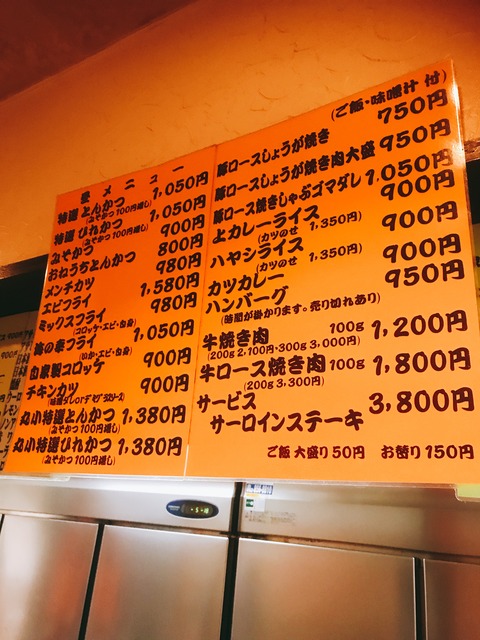 昼メニュー
特選 とんかつ 1,050円
(みそかつ100円増し)
特選 ひれかつ 1,050円
(みそかつ100円増し)
みそかつ 900円
おねうちとんかつ 800円
メンチカツ 980円
エビフライ 1,580円
ミックスフライ 980円
(コロッケ・エビ・白身)
海の幸フライ 1,050円
(いか・エビ・白身)
自家製コロッケ 900円
チキンカツ 900円
丸小特選とんかつ 1,380円
(みそかつ100円増し)
丸小特選ひれかつ 1,380円
(みそかつ100円増し)
(ご飯・味噌汁 付)
豚ロースしょうが焼き 750円
豚ロースしょうが焼き肉大盛 950円
豚ロース焼きしゃぶゴマダレ 1,050円
上カレーライス 900円
(カツのせ 1,350円)
ハヤシライス 900円
(カツのせ 1,350円)
カツカレー 900円
ハンバーグ 950円
(時間が掛かります。売り切れあり)
牛焼き肉 100g 1,200円
(200g 2,100円・300g 3,000円)
牛ロース焼き肉 100g 1,800円
(200g 3,300円)
サービス
サーロインステーキ 3,800円
ご飯 大盛り50円 お替り150円